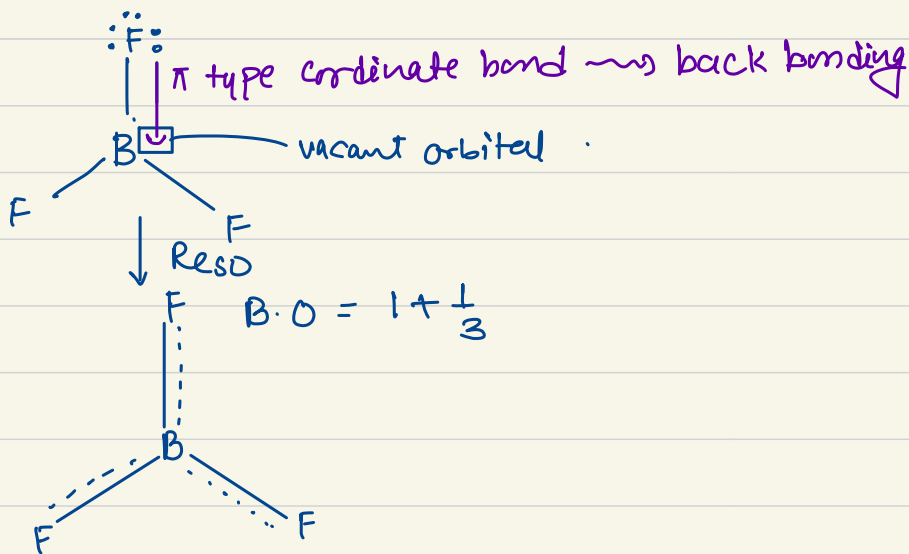 F
π type cordinate bond ⟿ back bonding
B vacant orbital .
F
F
↓ Reso
F B.O = 1 + 1/3
B
F F